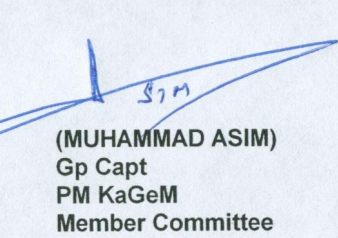 (MUHAMMAD ASIM)
Gp Capt
PM KaGeM
Member Committee